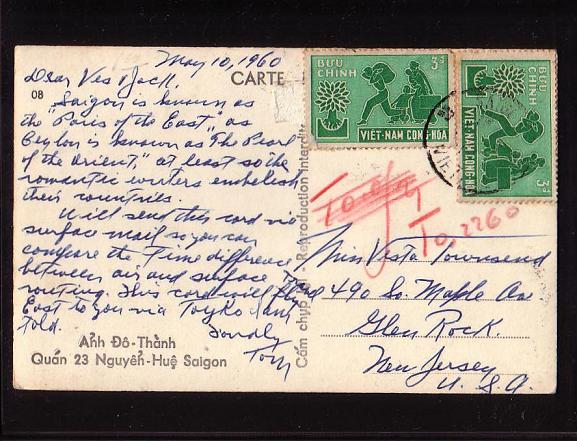 May 10, 1960
Dear Ves & Jack,
Saigon is known as
the "Paris of the East," as
Ceylon is known as "The Pearl
of the Orient," at least so the
romantic writers embelish
their countries.
Will send this card via
surface mail so you can
compare the time difference
between air and surface
routing. This card will
East to you via Toyko I am
told.
Fondly
Tom
08
Ảnh Đô-Thành
Quán 23 Nguyễn-Huệ Saigon
CARTE
Cấm chụp - Reproduction interdite
BƯU CHÍNH
3đ
VIỆT-NAM CỘNG-HÒA
BƯU CHÍNH
3đ
VIỆT-NAM CỘNG-HÒA
T0,2260
Miss Vesta Townsend
490 So. Maple Ave
Glen Rock.
New Jersey
U. S. A.